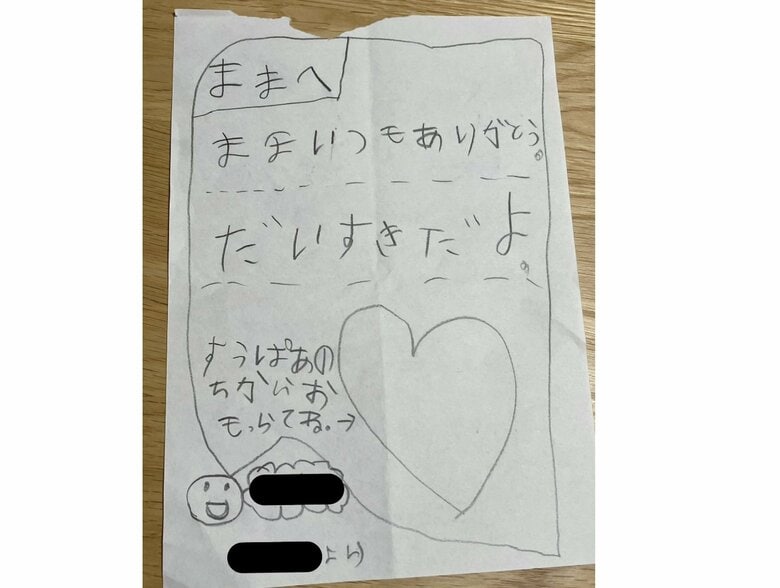 ままへ
ままいつもありがとう。
だいすきだよ。
すうぱあの
ちからお
もっらてね。→
より